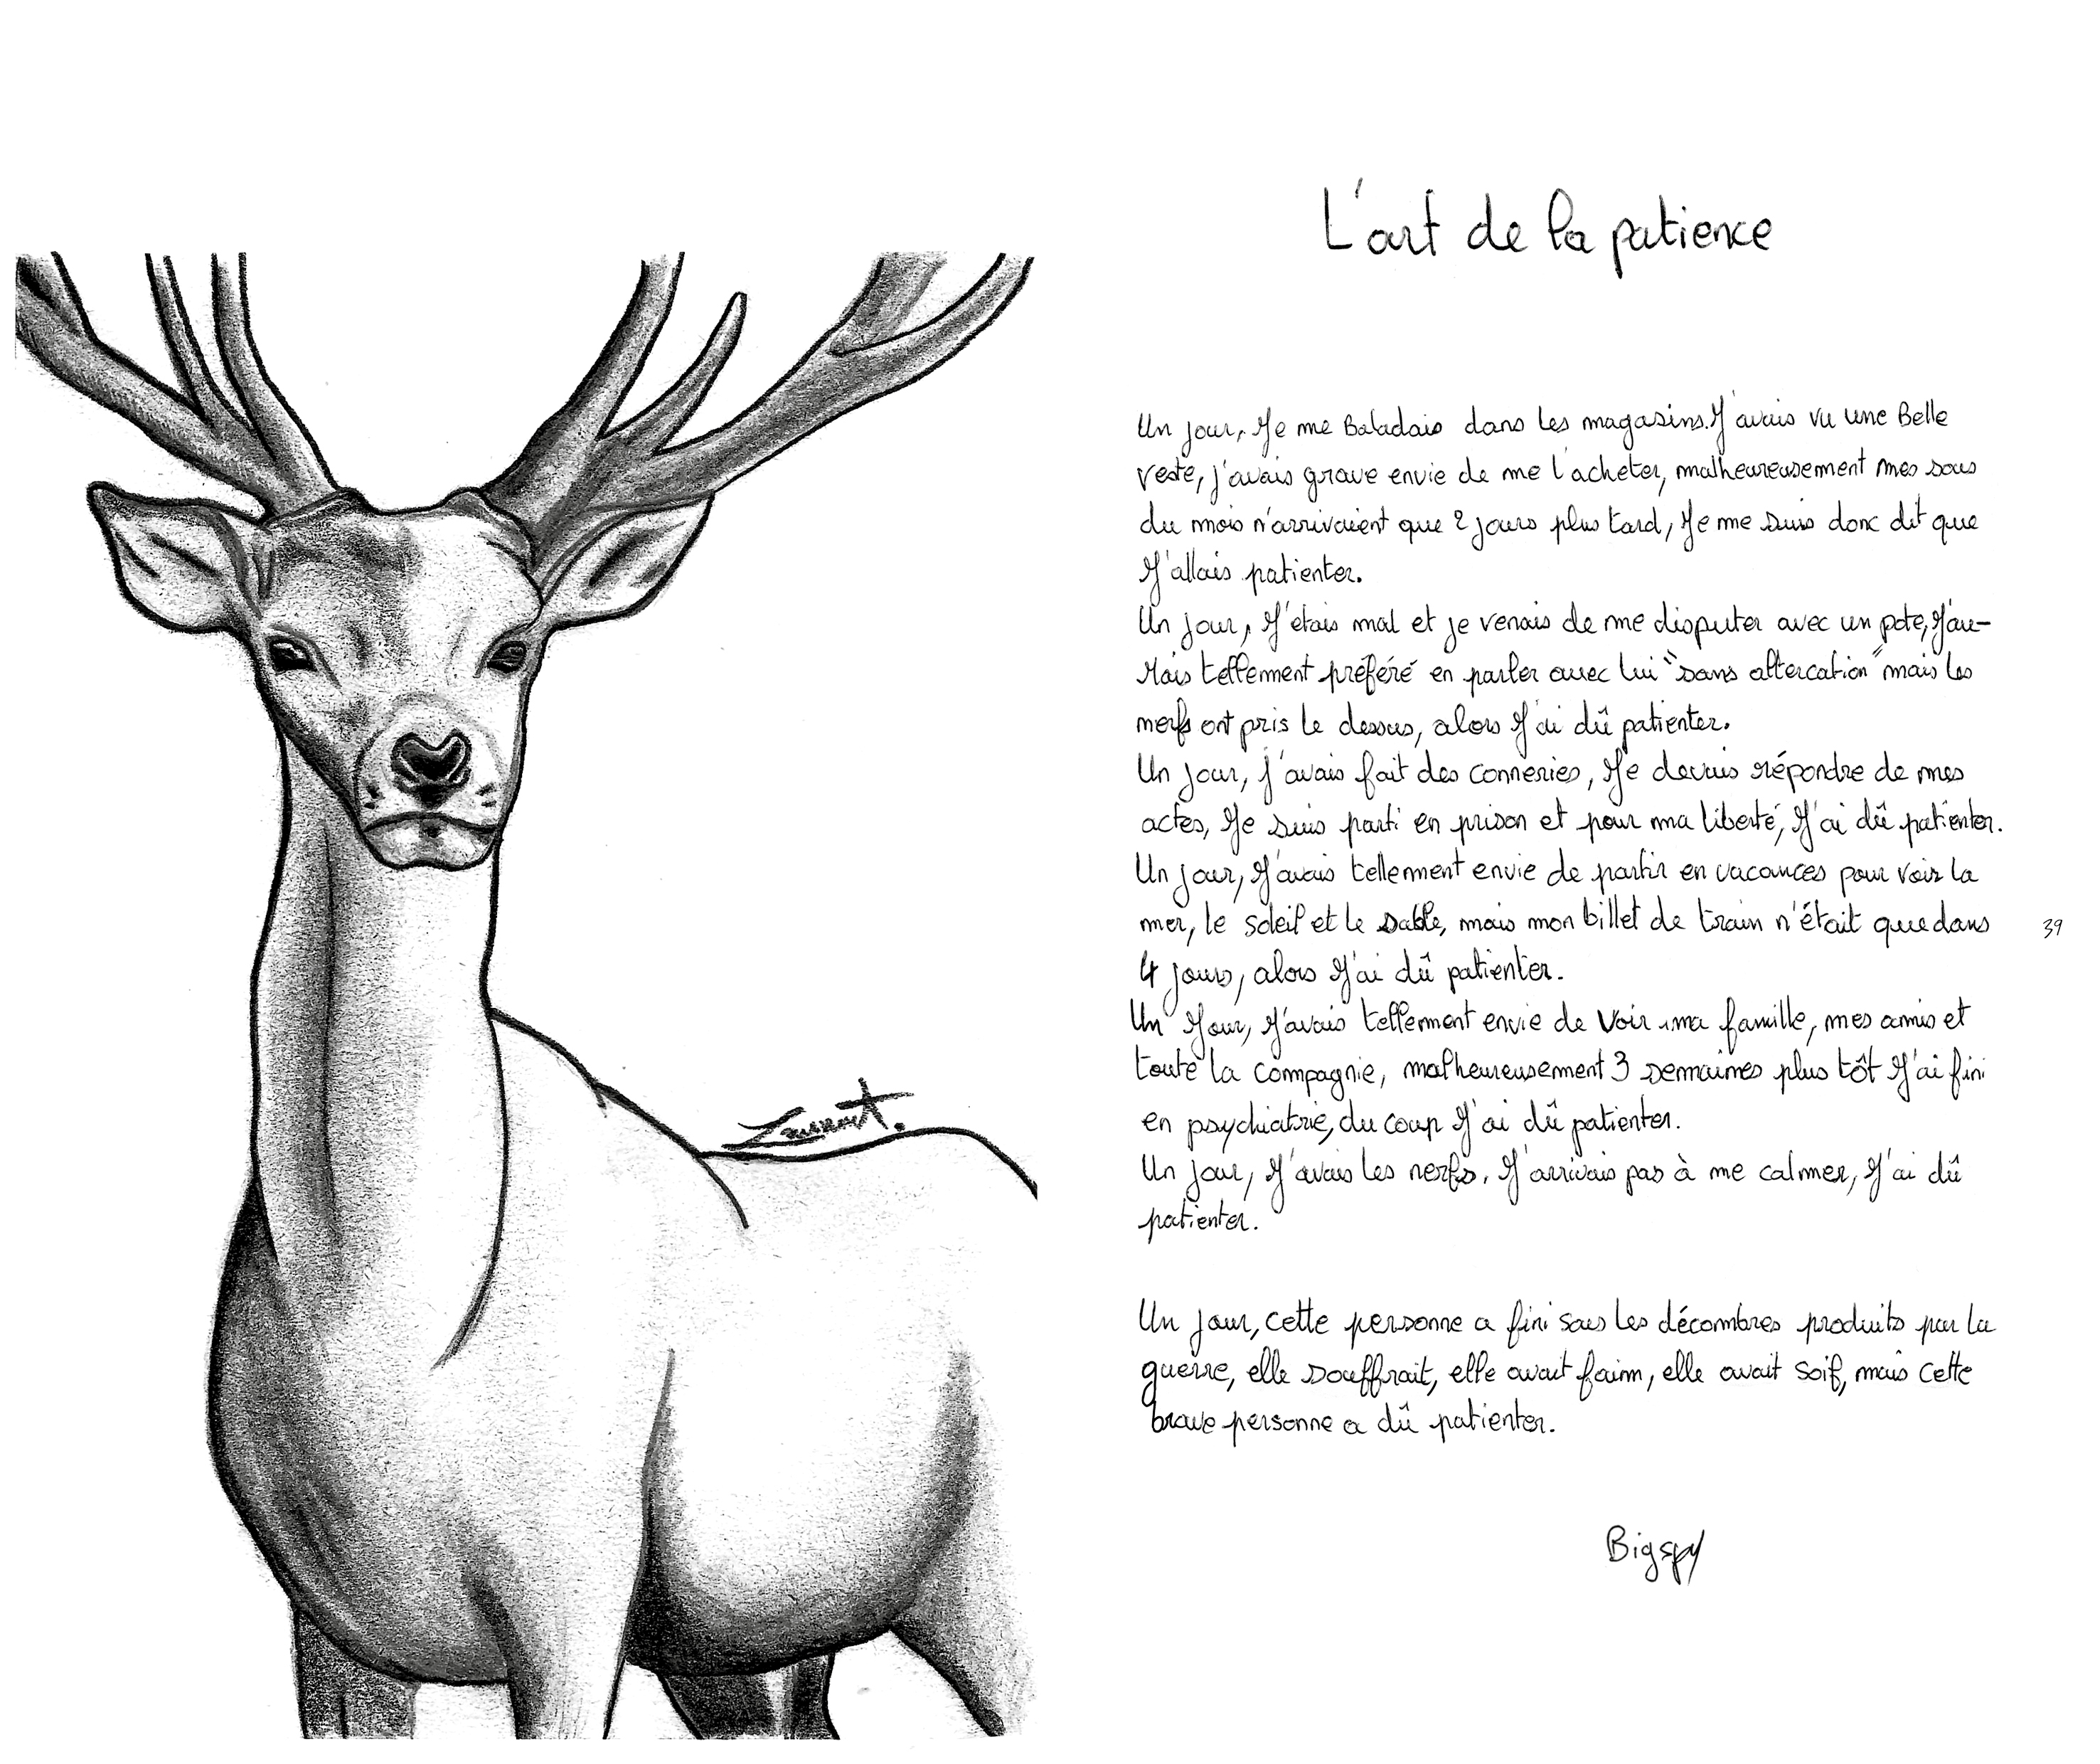 L'art de la patience
Un jour, Je me Baladais dans les magasins. J'avais vu une Belle
veste, j'avais grave envie de me l'acheter, malheureusement mes sous
du mois n'arrivaient que 2 jours plus tard, Je me suis donc dit que
J'allais patienter.
Un jour, J'étais mal et je venais de me disputer avec un pote, J'au-
rais tellement préféré en parler avec lui "sans altercation" mais les
nerfs ont pris le dessus, alors J'ai dû patienter.
Un jour, j'avais fait des conneries, Je devais répondre de mes
actes, Je suis parti en prison et pour ma liberté, J'ai dû patienter.
Un jour, J'avais tellement envie de partir en vacances pour voir la
mer, le soleil et le sable, mais mon billet de train n'était que dans
4 jours, alors J'ai dû patienter.
Un Jour, J'avais tellement envie de voir ma famille, mes amis et
toute la compagnie, malheureusement 3 semaines plus tôt J'ai fini
en psychiatrie, du coup J'ai dû patienter.
Un jour, J'avais les nerfs. J'arrivais pas à me calmer, J'ai dû
patienter.
Un jour, cette personne a fini sous les décombres produits par la
guerre, elle souffrait, elle avait faim, elle avait soif, mais cette
brave personne a dû patienter.
Bigspy
39